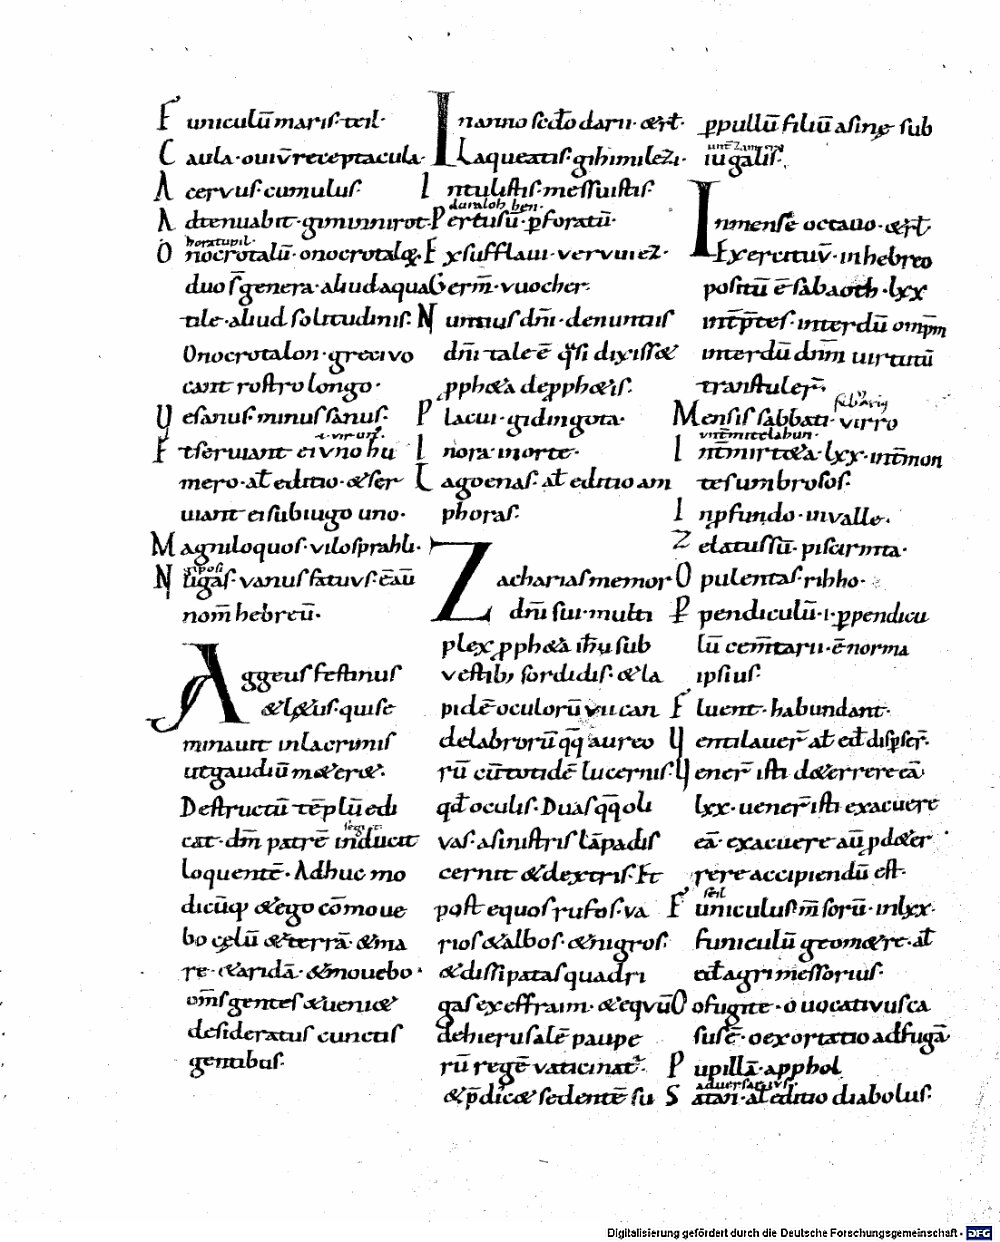 Funiculū maris· teil·
Caula· ouiū receptacula·
Aceruus· cumulus·
Adtenuabit· giminnirot·
horatupil·
Onocrotalū· onocrotalꝫ·
duo s̄ genera· aliud aqua
tile· aliud solitudinis·
Onocrotalon· greci vo
cant rostro longo·
Vesanus· minus sanus·
Et seruiant ei vno hu
mero· at̄ editio· & ser
uiant ei sub iugo uno·
Magniloquos· vilosprahli·
Nugas· vanus fatuus· ē aū
nom̄ hebreū·
Aggeus festinus
& lętus· qui se
minauit in lacrimis
ut gaudiū meter&·
Destructū tēplū edi
cat· dm̄ patrē inducit
loquentē· Adhuc mo
dicūq; & ego cōmoue
bo cęlū & terrā· & ma
re· & aridā· & mouebo·
om̄s gentes & ueni&
desideratus cunctis
gentibus·
In anno sc̄do darii· & rt̄·
Laqueatis· gihimilezi·
Intulistis· messuistis·
duraloh ben·
Pertusū· p̱foratū·
Exsufflaui· vervuiez·
Germ̄· vuocher·
Nuntius dn̄i· denuntiis
dn̄i tale ē q̄si dixiss&
ꝓph&a de ꝓph&is·
Placui· gidingota·
In ora morte·
Lagoenas· at̄ editio am
phoras·
Zacharias memor
dn̄i sui· multi
plex ꝓph&a ih̄u sub
vestib; sordidis· & la
pidē oculorū vii can
delabrorū qq̄ aureo
rū cū totidē lucernis·
qđ oculis· Duas qq̄ oli
vas· a sinistris lāpadis
cernit & dextris· Et
post equos rufos· va
rios & albos· & nigros·
& dissipatas quadri
gas ex effraim· & equū
de hierusalē paupe
rū regē vaticinat̄·
& p̄dic& sedentē su
ꝑ pullū filiū asinę sub
iugalis·
In mense octauo· & rt̄·
Exercituū· in hebreo
positū ē sabaoth· lxx
int̄p̄tes· interdū omp̄m
interdū dnm̄ uirtutū
transtuler̄·
Mensis sabbati· virro
Int̄ mirteta· lxx· int̄ mon
tes umbrosos·
In ꝓfundo· in valle·
Zelatus sū· piscirmta·
Opulentas· rihho·
Ꝑpendiculū· i· ꝑpendicu
lū cem̄tarii· ē norma
ipsius·
Fluent· habundant·
Ventilauer̄ at̄ ed̄ disp̱ser̄·
Vener̄ isti deterrere eā
lxx· uener̄ isti exacuere
eā· exacuere aū ꝓ deter
rere accipiendū est·
seil
Funiculus m̄sorū· in lxx·
funiculū geometre· at̄
ed̄ agri messorius·
O fugite· o uocativus ca
sus ē· o exortatio ad fugā
Pupillā· apphol
aduersarius·
Satan· at̄ editio diabolus·
Digitalisierung gefördert durch die Deutsche Forschungsgemeinschaft · DFG